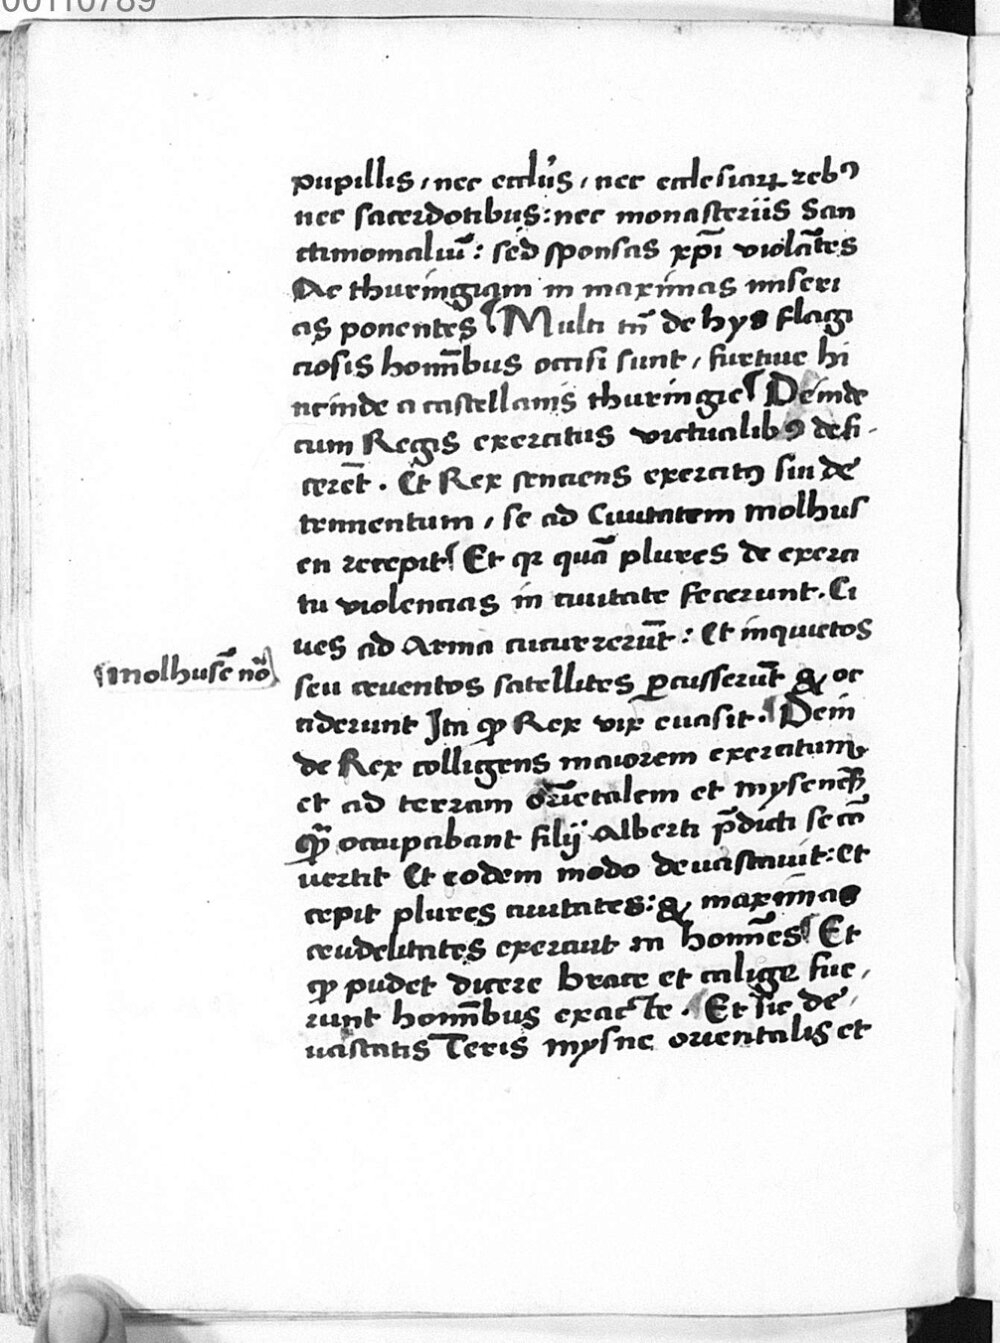 00110789
pupillis, nec eccl̄īs, nec ecclesiaꝝ rebꝰ
nec sacerdotibus: nec monasteriis San
ctimonialiū: sed sponsas xp̄i violātes
Ac thuringiam in maximas miseri
as ponentes Multi tn̄ de hys flagi
ciosis homībus occisi sunt, furtiue hi
ncinde a castellanis thuringie Deinde
cum Regis exercitus victualibꝰ defi-
cerēt. Et Rex senciens exercitꝰ sui de
trimentum, se ad Ciuitatem molhus
en recepit Et qꝛ quā plures de exerci
tu violencias in ciuitate fecerunt. Ci
ues ad Arma cucurrerūt: Et inquietos
molhusē nō
seu cruentos satellites ꝑcusserūt & oc
ciderunt Ita ꝙ Rex vix euasit. Dein
de Rex colligens maiorem exercitum
et ad terram oriētalem et mysenēs̄
quā occupabant filij Alberti p̄dicti se cō
uertit Et eodem modo deuastauit: Et
cepit plures ciuitates: & maximas
crudelitates exercuit in homīes Et
ꝙ pudet dicere brace et calige fue,
runt homībus exacte. Et sic de,
uastatis Terris mysne orientalis et